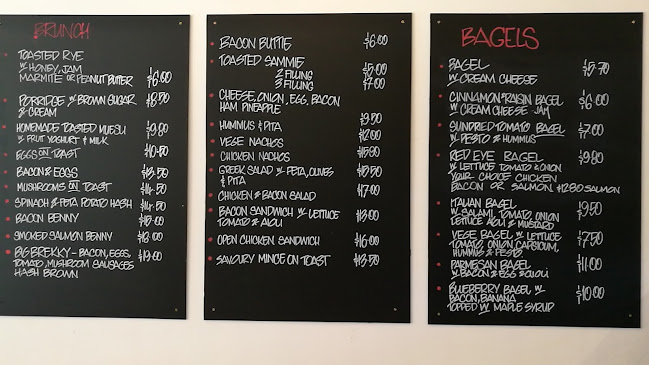 BRUNCH
TOASTED RYE
W HONEY, JAM
MARMITE OR PEANUT BUTTER $6.00
PORRIDGE W BROWN SUGAR $8.50
& CREAM
HOMEMADE TOASTED MUESLI $9.80
W FRUIT YOGHURT & MILK
EGGS ON TOAST $10.50
BACON & EGGS $13.50
MUSHROOMS ON TOAST $14.50
SPINACH & FETA POTATO HASH $14.50
BACON BENNY $15.00
SMOKED SALMON BENNY $18.00
BIG BREKKY - BACON, EGGS, $19.00
TOMATO, MUSHROOM SAUSAGES
HASH BROWN
BACON BUTTIE $6.00
TOASTED SAMMIE
2 FILLING $5.00
3 FILLING $7.00
CHEESE, ONION, EGG, BACON
HAM PINEAPPLE
HUMMUS & PITA $9.50
VEGE NACHOS $12.00
CHICKEN NACHOS $15.80
GREEK SALAD W FETA, OLIVES $13.50
& PITA
CHICKEN & BACON SALAD $17.00
BACON SANDWICH W LETTUCE $13.00
TOMATO & AIOLI
OPEN CHICKEN SANDWICH $16.00
SAVOURY MINCE ON TOAST $13.50
BAGELS
BAGEL $5.70
W CREAM CHEESE
CINNAMON & RAISIN BAGEL $6.00
W CREAM CHEESE JAM
SUNDRIED TOMATO BAGEL $7.00
W PESTO & HUMMUS
RED EYE BAGEL $9.80
W LETTUCE TOMATO & ONION
YOUR CHOICE CHICKEN
BACON OR SALMON $12.80 SALMON
ITALIAN BAGEL $9.50
W SALAMI, TOMATO, ONION
LETTUCE AIOLI & MUSTARD
VEGE BAGEL W LETTUCE $7.50
TOMATO, ONION, CAPSICUM,
HUMMUS & PESTO
PARMESAN BAGEL $11.00
W BACON & EGG & AIOLI
BLUEBERRY BAGEL W $10.00
BACON, BANANA
TOPPED W MAPLE SYRUP